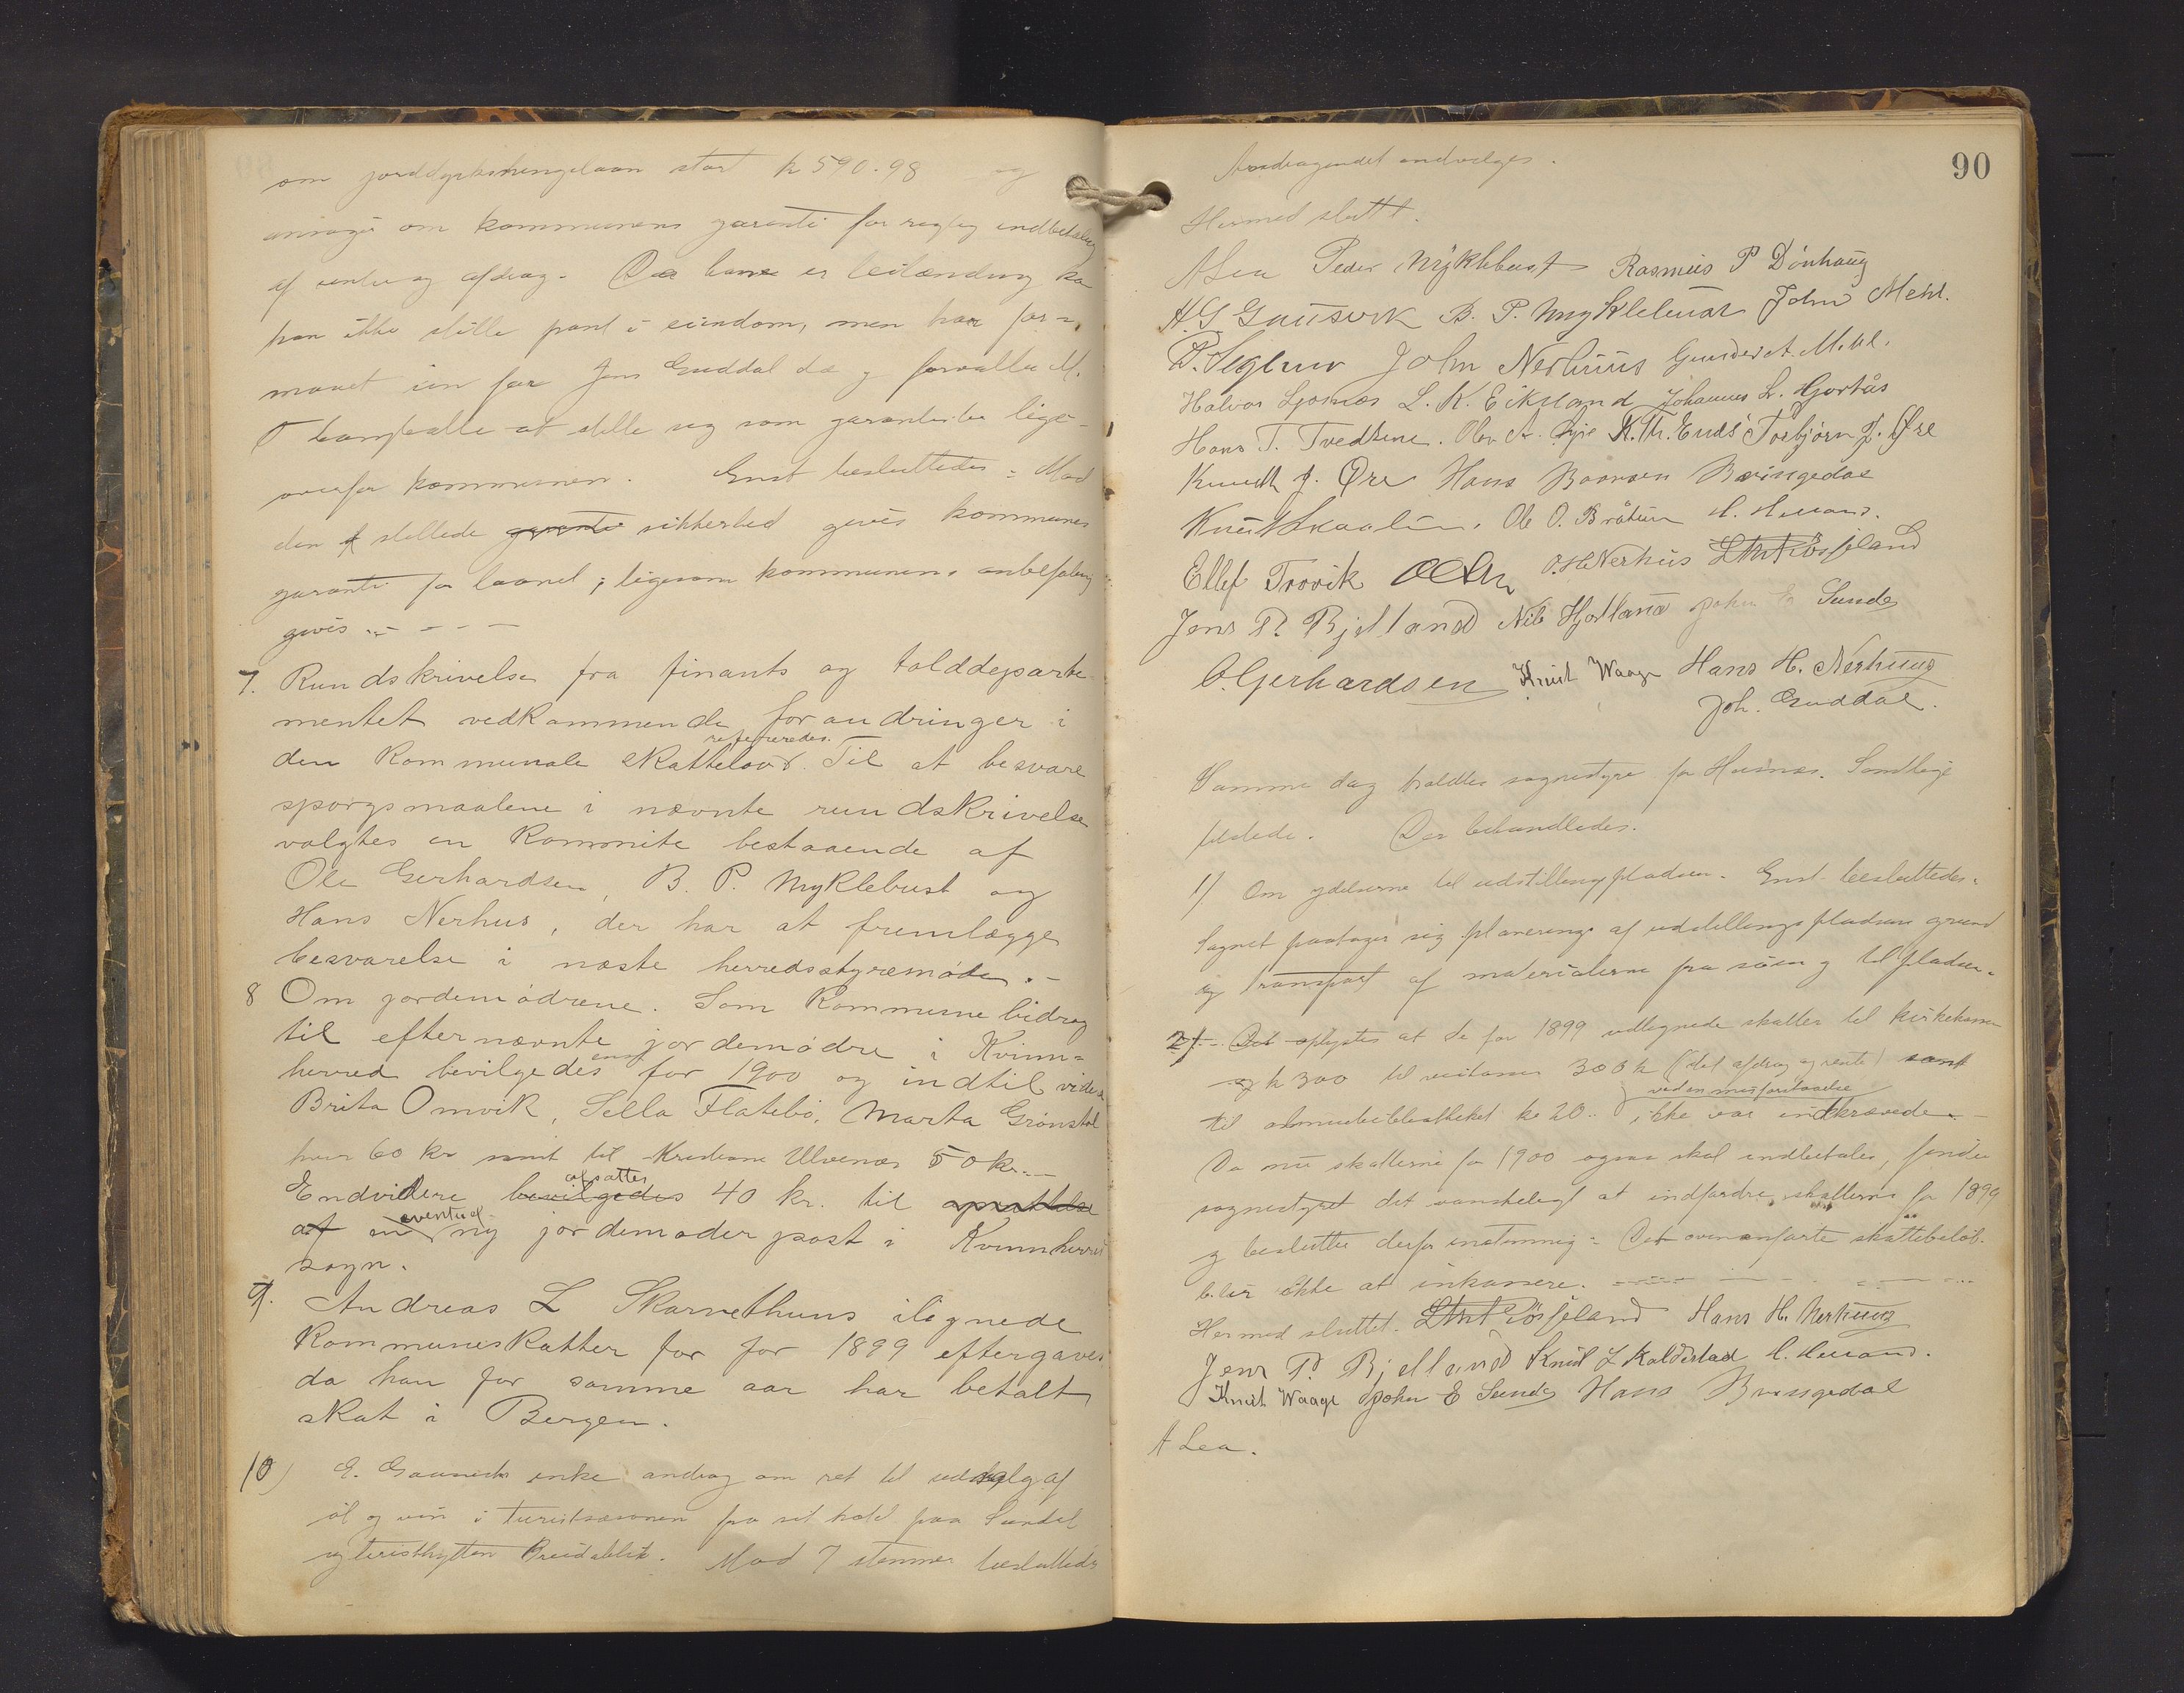 om jorddyrkningslaan stort k 590.98 og
ansøger om kommunens garanti for rigtig indbetaling
af renter og afdrag. Da han er leilænding kan
han ikke stille pant i eiendom, men har for-
maaet sin far Jens Guddal da g forvalter M.
T at stille sig som garantister lige-
overfor kommunen. Enst besluttedes: Mod
den stillede garanti sikkerhed gives kommunes
garanti for laanet; ligesom kommunens anbefaling
gives. - - - -
7. Rundskrivelse fra finants og tolddeparte-
mentet vedkommende forandringer i
refereredes.
den kommunale skattelov. Til at besvare
spørgsmaalene i nævnte rundskrivelse
valgtes en Kommite bestaaende af
Ole Gerhardsen, B. P. Myklebust og
Hans Nerhus, der har at fremlægge
besvarelse i næste herredsstyremøde. -
8 Om jordemødrene. Som Kommunebidrag
til efternævnte jordemødre i Kvinn=
herred bevilgedes enst for 1900 og indtil videre
Brita Omvik, Sella Flatebø, Marta Grønstøl
hver 60 kr samt til Kristiane Ulvenes 50 kr. -
afsattes
Endvidere bevilgedes 40 kr. til oprettelse
eventuel
af en ny jordemoderpost i Kvinnherred
sogn.
9. Andreas L Skarvethuns ilignede
Kommuneskatter for for 1899 eftergaves
da han for samme aar har betalt
skat i Bergen.
10) E. Gauneds enke androg om ret til udsalg af
øl og vin i turistsæsonen fra sit hotel paa Sundal
og turisthytten Breidablik. Mod 7 stemmer besluttedes
90
Andragendet indvilges.
Hermed sluttet.
A Lea Peder Myklebust Rasmus P Dønhaug
H. G. Gausvik B. P. Myklebust John Mehl.
P. Seglem John Nerhuus Gunder A. Mehl.
Halvor Ljosnes L. K. Eikeland Johannes L. Hjortås
Hans T. Tvedtene. Olav A. Øyre K. Th. Enes Torbjørn J. Øre
Knudt J. Øre Hans Baarsen Bringedal
Knut Skaalin. Ole O. Bråtun H. Husand.
Ellef Trovik O. H. Nerhus L Røsseland
Jens P. Bjelland Nils Hjartland John E Sunde
O. Gerhardsen Knut Waage Hans H. Nerhuus
Joh. Guddal.
Samme dag holdtes sognestyre for Husnes. Samtlige
tilstede. Der behandledes.
1/ Om ydelserne til udstillingspladsen. Enst besluttedes:
Sognet paatager sig planering af udstillingspladsens grund
og transport af materialerne fra søen og til pladsen.
2/ - Det oplystes at de for 1899 udlignede skatter til kirkekassen
og k 300 til 300 k (det afdrag og rente) samt
ved en misforstaaelse
til almuebibliotheket kr 20.. ikke var indkrævede. -
Da nu skatterne for 1900 ogsaa skal indbetales, finder
sognestyret det vanskeligt at indfordre skatterne for 1899
og beslutter derfor enstemmig: Det ovenanførte skattebeløb
blir ikke at inkassere. - - - -
Hermed sluttet. L Røsseland Hans H. Nerhuus
Jens P. Bjelland Knut L Kaldestad H. Husand.
Knut Waage John E Sunde Hans Bringedal
A Lea.